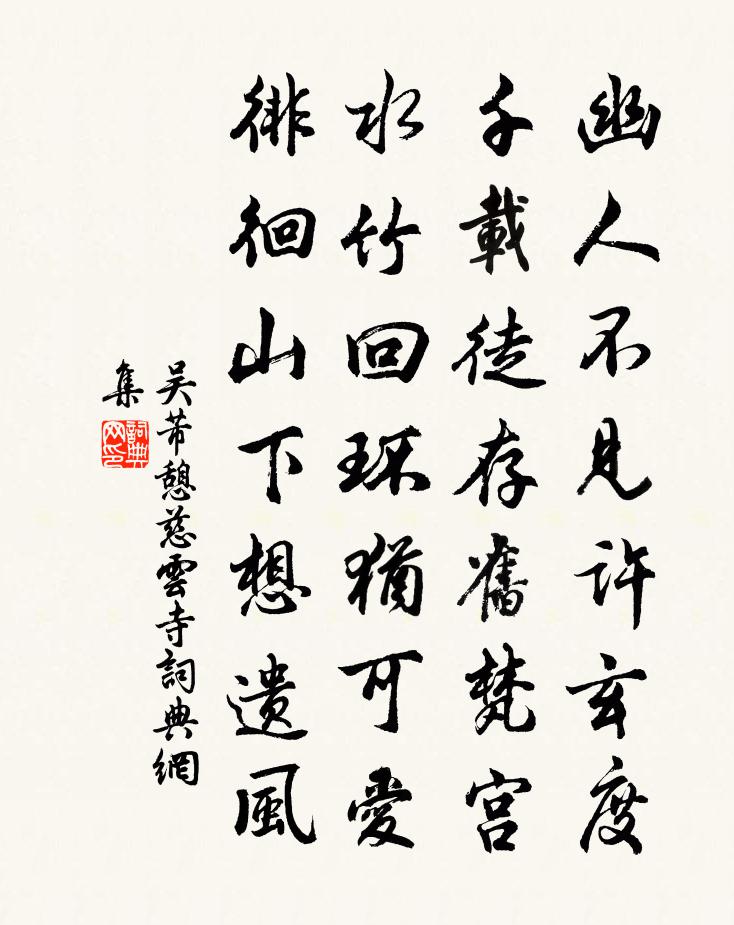 幽人不見許玄度
千載徒存舊梵宮
水竹回環猶可愛
徘徊山下想遺風
吴芾憩慈雲寺詞典網
集
詞典
网印